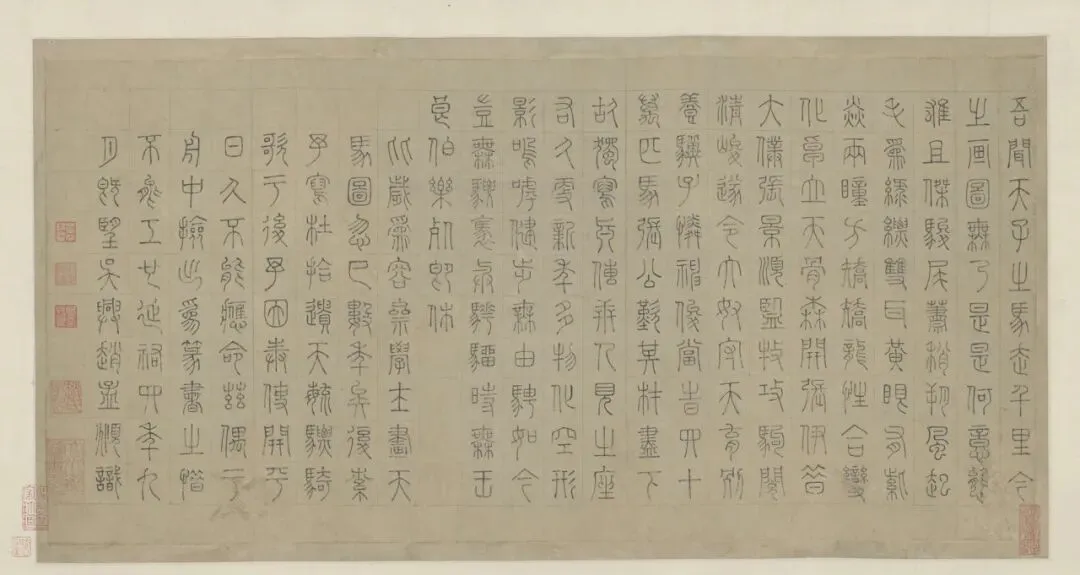 吾聞天子之馬走千里今
之画圖無乃是是何意態
雄且傑駿尾蕭梢朔風起
毛為綠縹雙耳黃眼有紫
焱兩瞳方矯矯龍性合變
化卓立天骨森開張伊昔
大僕張景順監牧攻駒閱
清峻遂令大奴字天育別
養驥子憐神俊當旹四十
萬匹馬張公歎其材盡下
故獨寫真傳世人見之座
右久更新年多物化空形
影嗚呼健步無由騁如今
豈無騕褭與驊騮時無王
良伯樂死即休
比歲為容齋學士畫天
馬圖忽已數年矣後索
予寫杜拾遺天育驃騎
歌于後予因奉使開平
日久不能應命茲偶于
舟中撿出為篆書之惜
不能工也延祐四年九
月既望吳興趙孟頫識